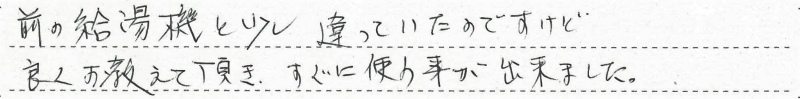 前の給湯機と少し違っていたのですけど
良くお教えて頂き、すぐに使う事が出来ました。